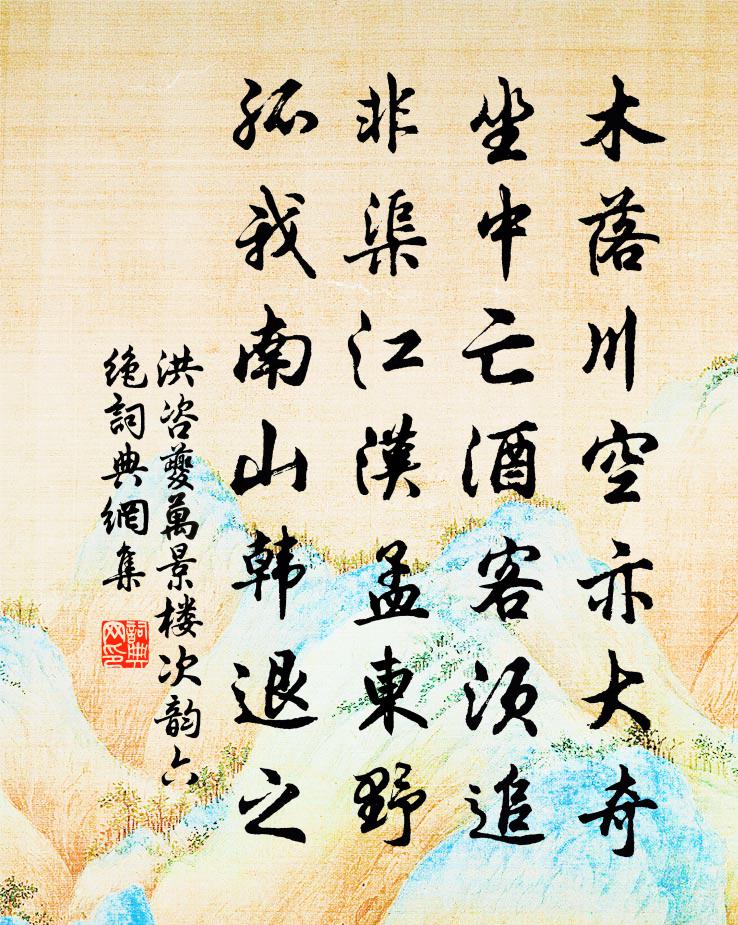 木落川空亦大奇
坐中亡酒客須追
非渠江漢孟東野
孤我南山韩退之
洪咨夔萬景楼次韵六
绝詞典網集
詞典网印